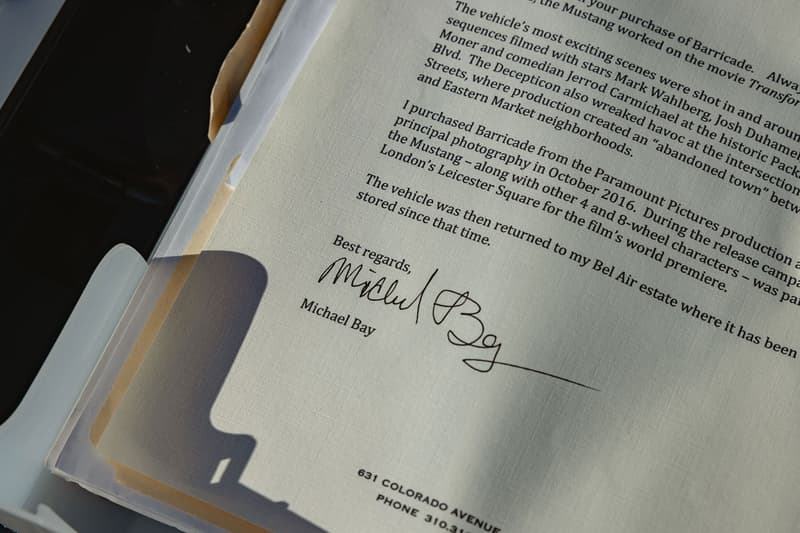 your purchase of Barricade. Alwa
, the Mustang worked on the movie Transfor
The vehicle's most exciting scenes were shot in and aroun
sequences filmed with stars Mark Wahlberg, Josh Duhamel
Moner and comedian Jerrod Carmichael at the historic Pack
Blvd. The Decepticon also wreaked havoc at the intersection
Streets, where production created an "abandoned town" betw
and Eastern Market neighborhoods.
I purchased Barricade from the Paramount Pictures production a
principal photography in October 2016. During the release campa
the Mustang – along with other 4 and 8-wheel characters – was pa
London's Leicester Square for the film's world premiere.
The vehicle was then returned to my Bel Air estate where it has been
stored since that time.
Best regards,
Michael Bay
Michael Bay
631 COLORADO AVENUE
PHONE 310.31